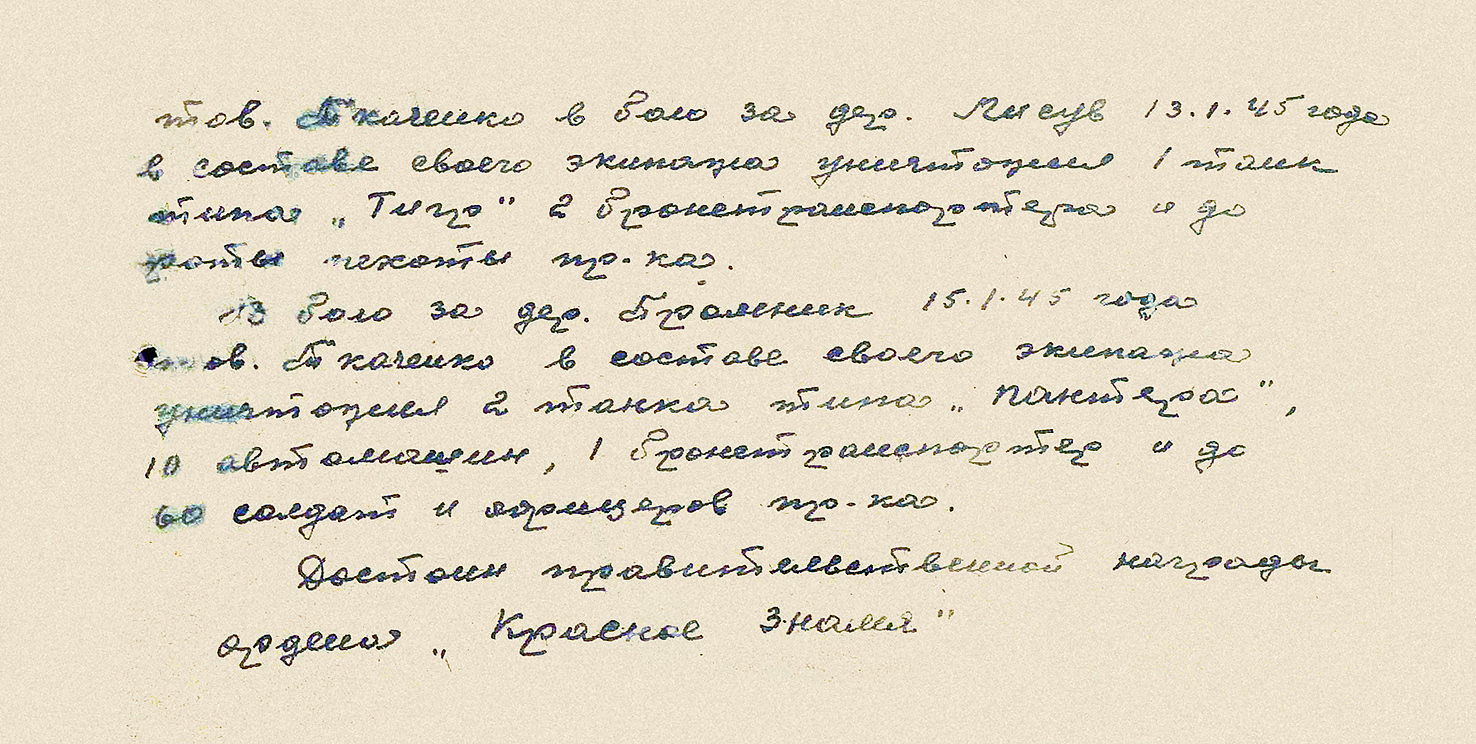 тов. Ткаченко в бою за дер. Лисув 13.1.45 года
в составе своего экипажа уничтожил 1 танк
типа „Тигр" 2 бронетранспортера и до
роты пехоты пр-ка.
В бою за дер. Промник 15.1.45 года
тов. Ткаченко в составе своего экипажа
уничтожил 2 танка типа „Пантера",
10 автомашин, 1 бронетранспортер и до
60 солдат и офицеров пр-ка.
Достоин правительственной награды
ордена „Красное Знамя"